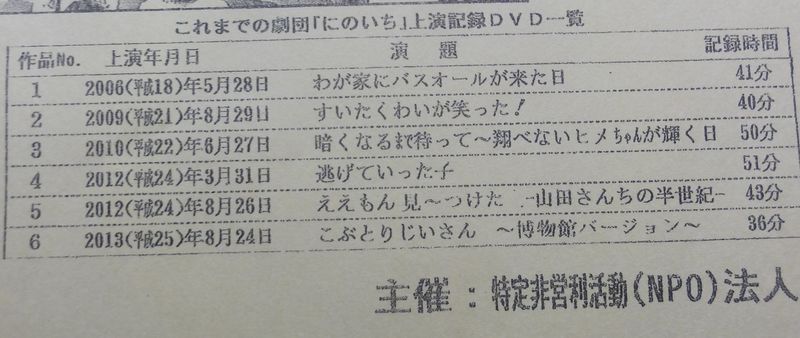 これまでの劇団「にのいち」上演記録DVD一覧
作品No. 上演年月日 演題 記録時間
1 2006(平成18)年5月28日 わが家にバスオールが来た日 41分
2 2009(平成21)年8月29日 すいたくわいが笑った! 40分
3 2010(平成22)年6月27日 暗くなるまで待って～翔べないヒメちゃんが輝く日 50分
4 2012(平成24)年3月31日 逃げていった子 51分
5 2012(平成24)年8月26日 ええもん見～つけた ―山田さんちの半世紀― 43分
6 2013(平成25)年8月24日 こぶとりじいさん ～博物館バージョン～ 36分
主催：特定非営利活動(NPO)法人